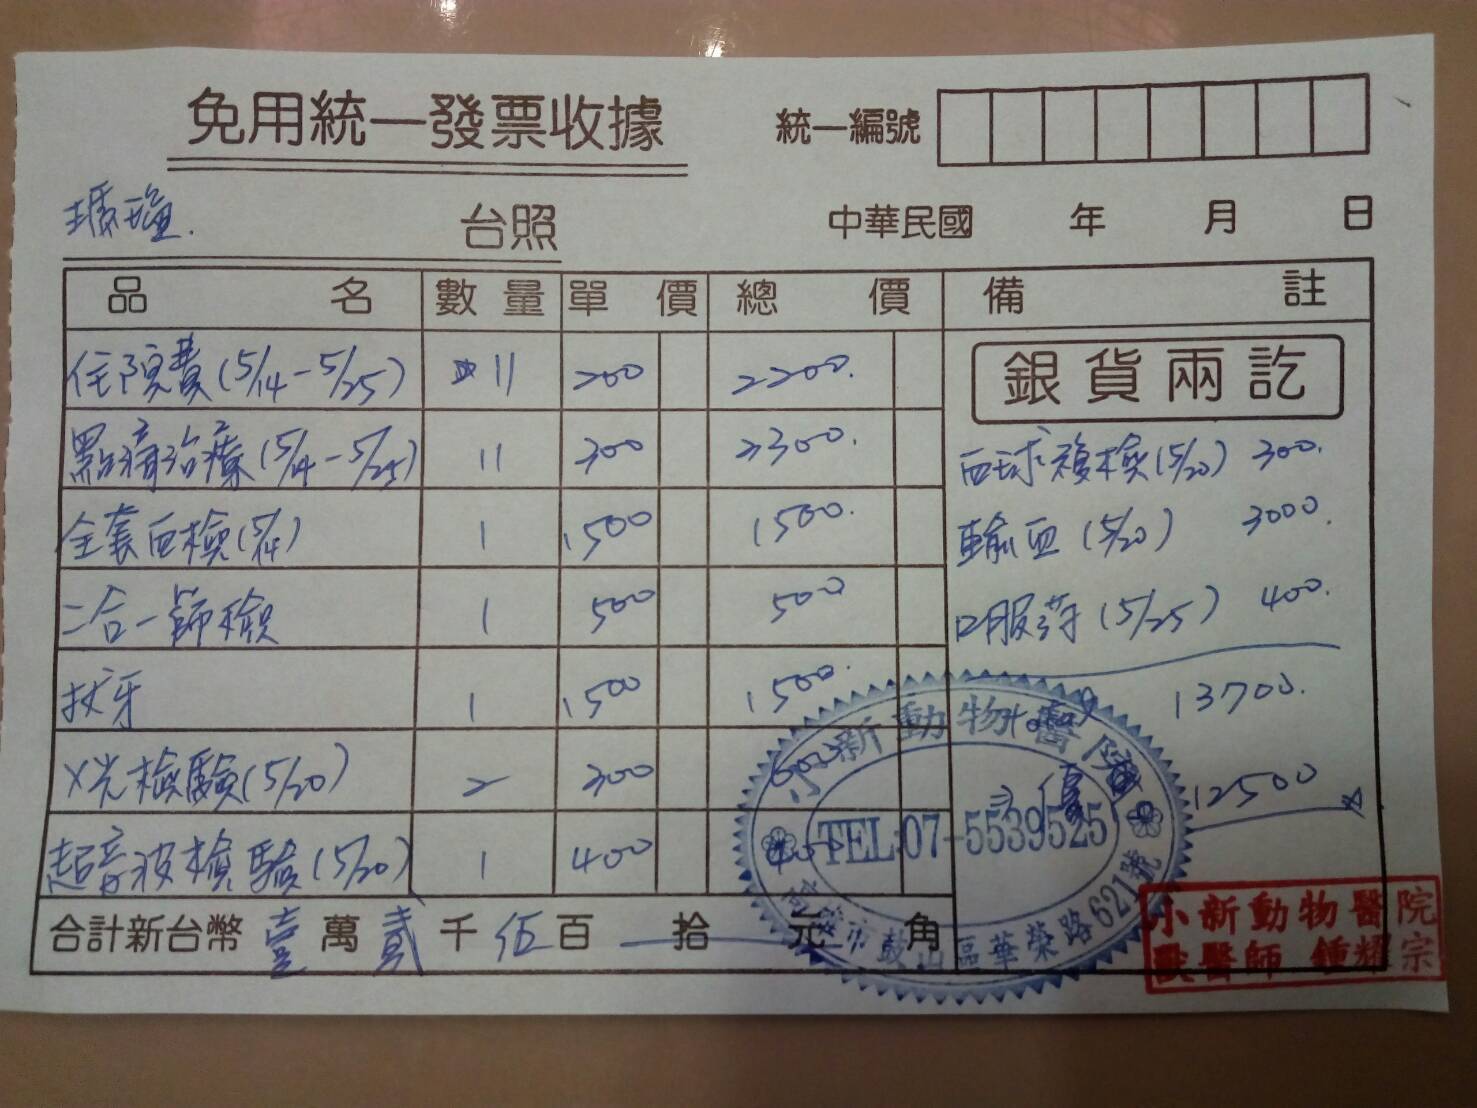 免用統一發票收據
統一編號
台照
中華民國 年 月 日
品 名 數量 單價 總價 備註
住院費(5/14-5/25) 11 200 2200.
點滴治療(5/14-5/25) 11 300 3300.
全套血檢(5/14) 1 1500 1500.
二合一篩檢 1 500 500
拔牙 1 1500 1500.
X光檢驗(5/20) 2 300 600
超音波檢驗(5/20) 1 400 400
銀貨兩訖
血球複檢(5/20) 300.
輸血(5/20) 3000.
口服葯(5/25) 400.
13700.
優
12500
合計新台幣 壹 萬 貳 千 伍 百 拾 元 角
小新動物醫院
TEL:07-5539525
高雄市鼓山區華榮路621號
小新動物醫院
獸醫師 鍾耀宗